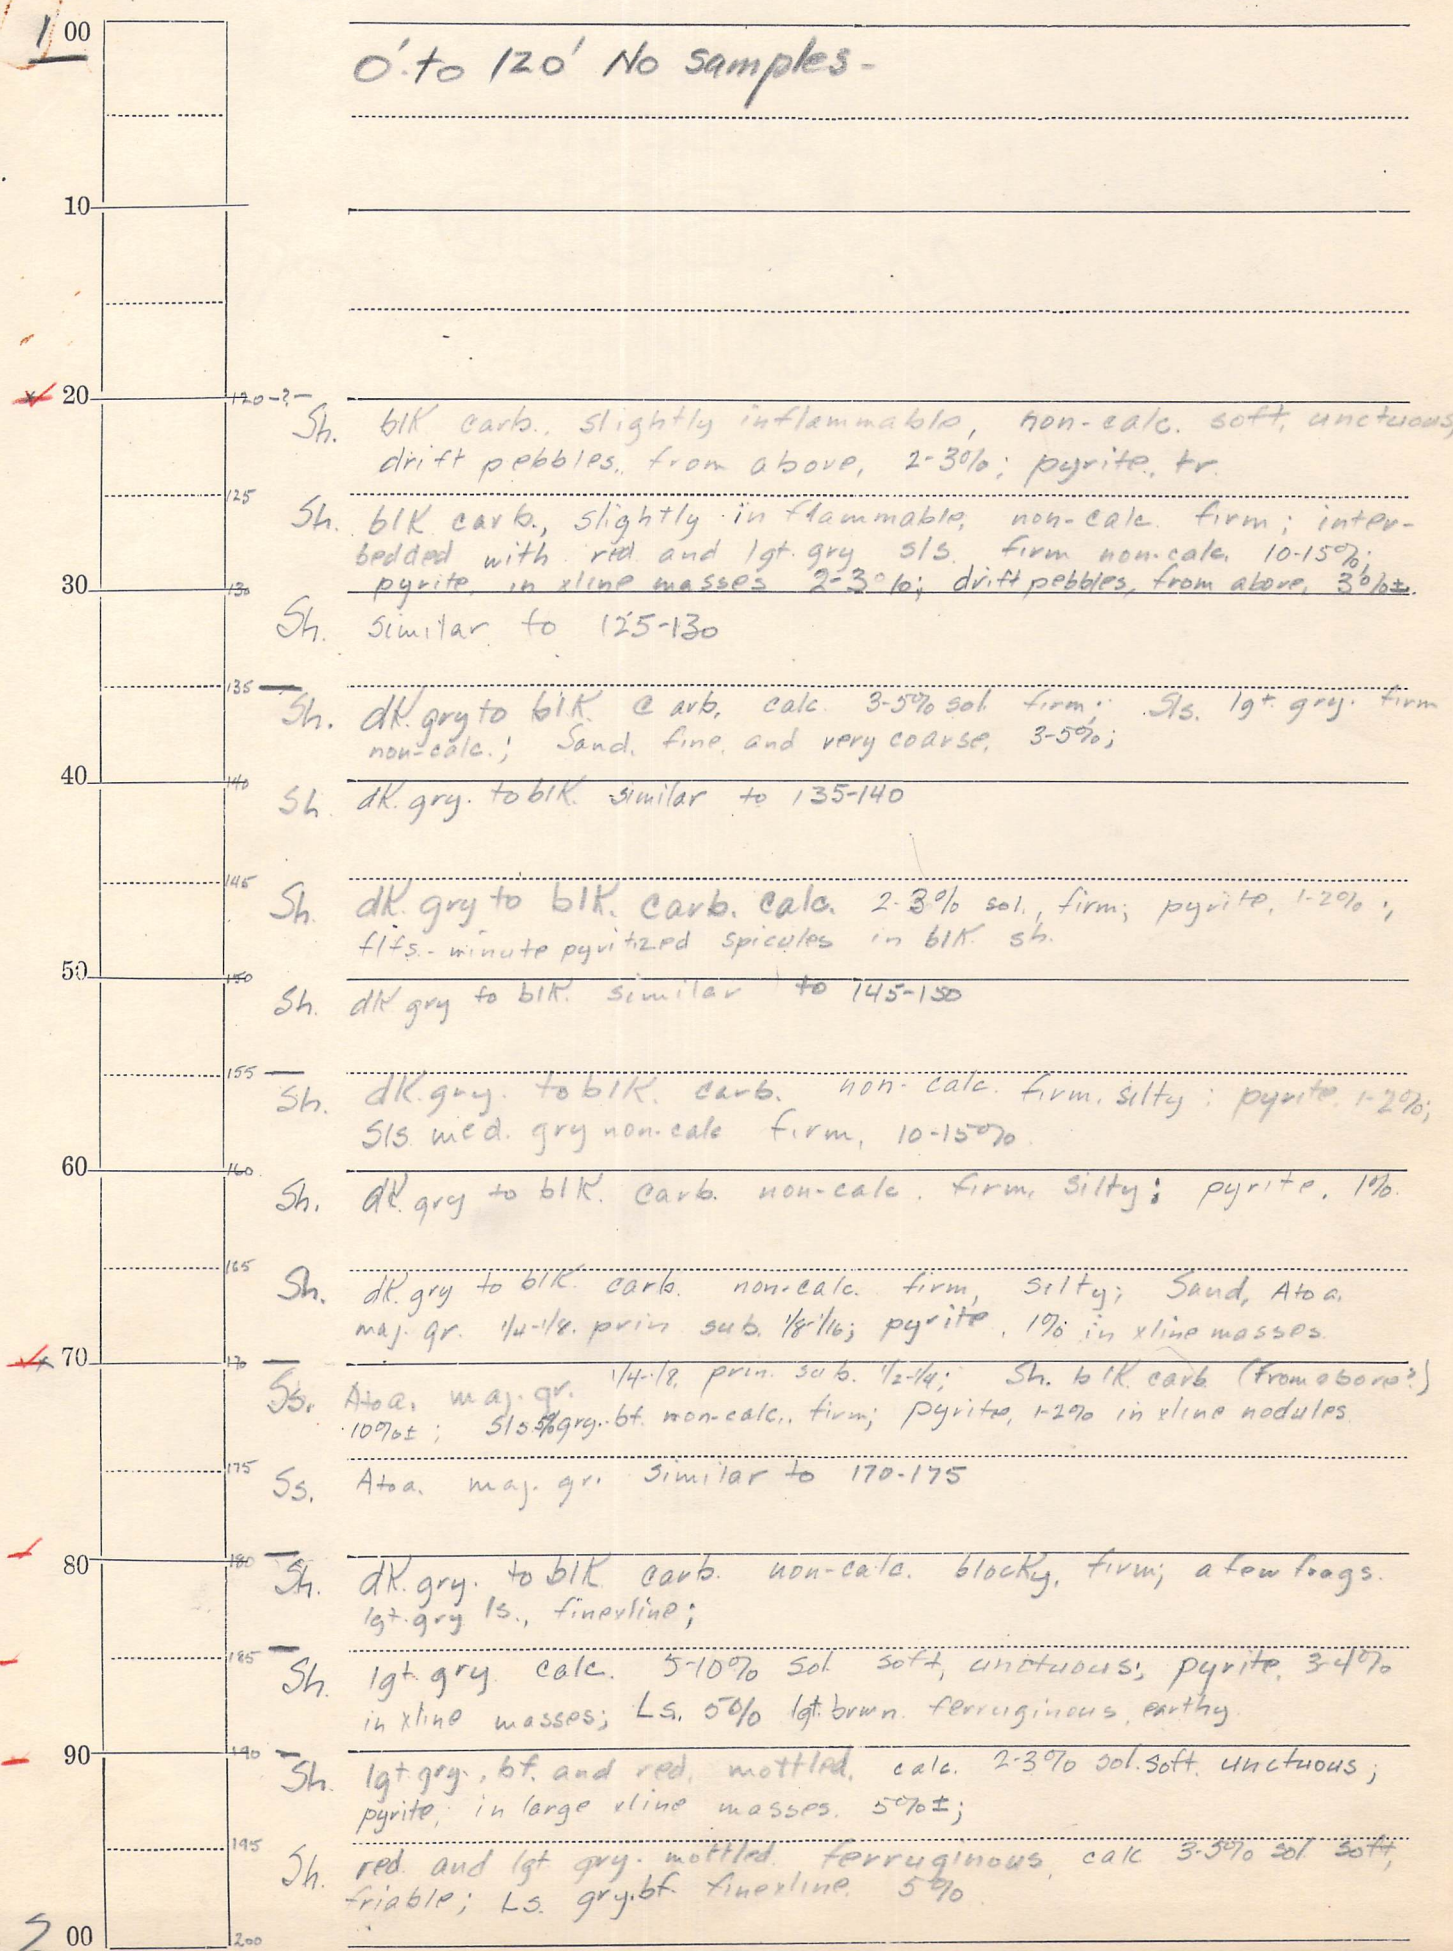 1 00
0' to 120' No samples-
10
20 120-?-
Sh. blk carb., slightly inflammable, non-calc. soft, unctuous,
drift pebbles, from above, 2-3%; pyrite, tr.
125
Sh. blk carb., slightly inflammable, non-calc. firm; inter-
bedded with red and lgt. gry sls. firm non-calc. 10-15%;
pyrite, in xline masses 2-3%; drift pebbles, from above, 3%±.
30 130
Sh. similar to 125-130
135
Sh. dk. gry to blk. carb. calc. 3-5% sol. firm; Sls. lgt. gry. firm
non-calc.; Sand, fine, and very coarse, 3-5%;
40 140
Sh dk. gry. to blk. similar to 135-140
145
Sh. dk. gry to blk. carb. calc. 2-3% sol., firm; pyrite, 1-2%;
minute pyritized spicules in blk sh.
50 150
Sh. dk gry to blk. similar to 145-150
155
Sh. dk. gry. to blk. carb. non-calc. firm, silty; pyrite, 1-2%;
Sls. med. gry non-calc firm, 10-15%.
60 160
Sh. dk. gry to blk. carb. non-calc. firm, silty; pyrite, 1%.
165
Sh. dk. gry to blk. carb. non-calc. firm, silty; Sand, A to a,
maj. gr. 1/4-1/8, prin sub. 1/8-1/16; pyrite, 1% in xline masses.
70 170
Ss. A to a, maj. gr. 1/4-1/8, prin. sub. 1/2-1/4; Sh. blk carb (from above?)
10%±; Sls 5% gry.-bf. non-calc., firm; pyrite, 1-2% in xline nodules.
175
Ss. A to a. maj. gr. similar to 170-175
80 180
Sh. dk. gry. to blk carb. non-calc. blocky, firm; a few frags.
lgt. gry ls., finexline;
185
Sh. lgt. gry calc. 5-10% sol. soft, unctuous; pyrite, 3-4%
in xline masses; Ls. 5% lgt. brwn. ferruginous, earthy
90 190
Sh. lgt. gry., bf. and red, mottled, calc. 2-3% sol. soft, unctuous;
pyrite, in large xline masses, 5%±;
195
Sh. red and lgt gry. mottled ferruginous, calc 3-5% sol. soft,
friable; Ls. gry.bf. finexline. 5%.
2 00 200